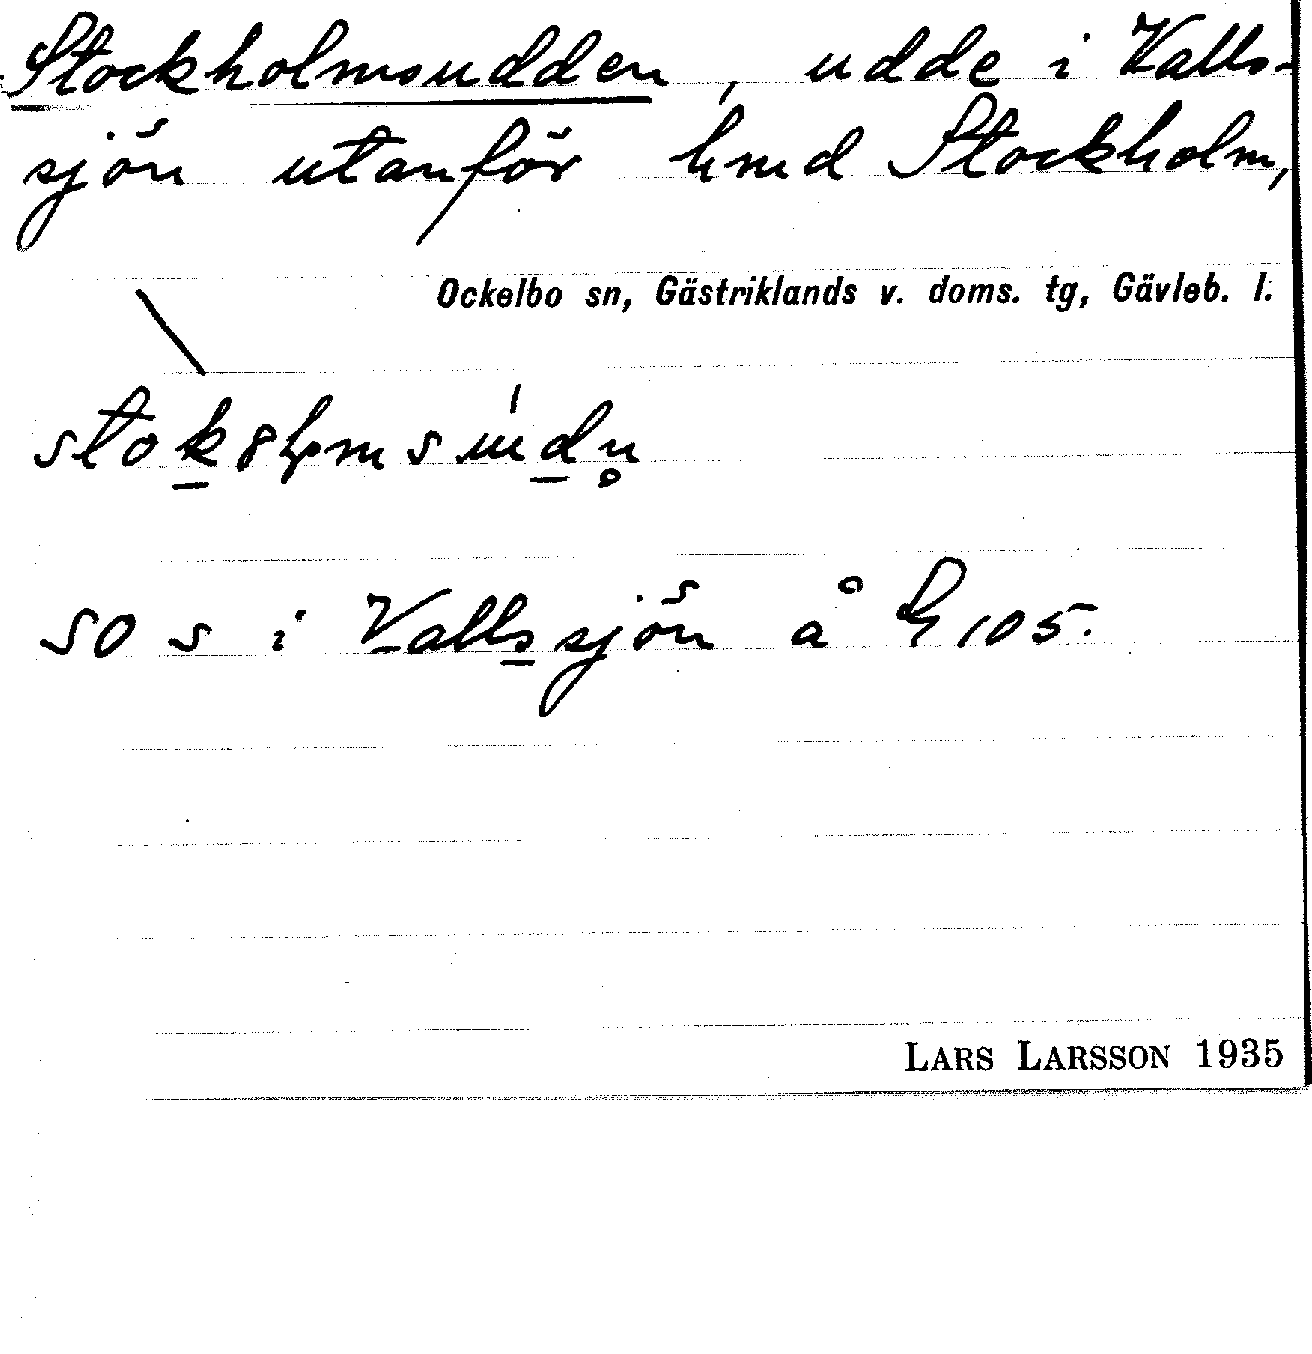 Stockholmsudden, udde i Valls-
sjön utanför hmd Stockholm,
Ockelbo sn, Gästriklands v. doms. tg, Gävleb. l.
SO s i Vallssjön å 105.
LARS LARSSON 1935